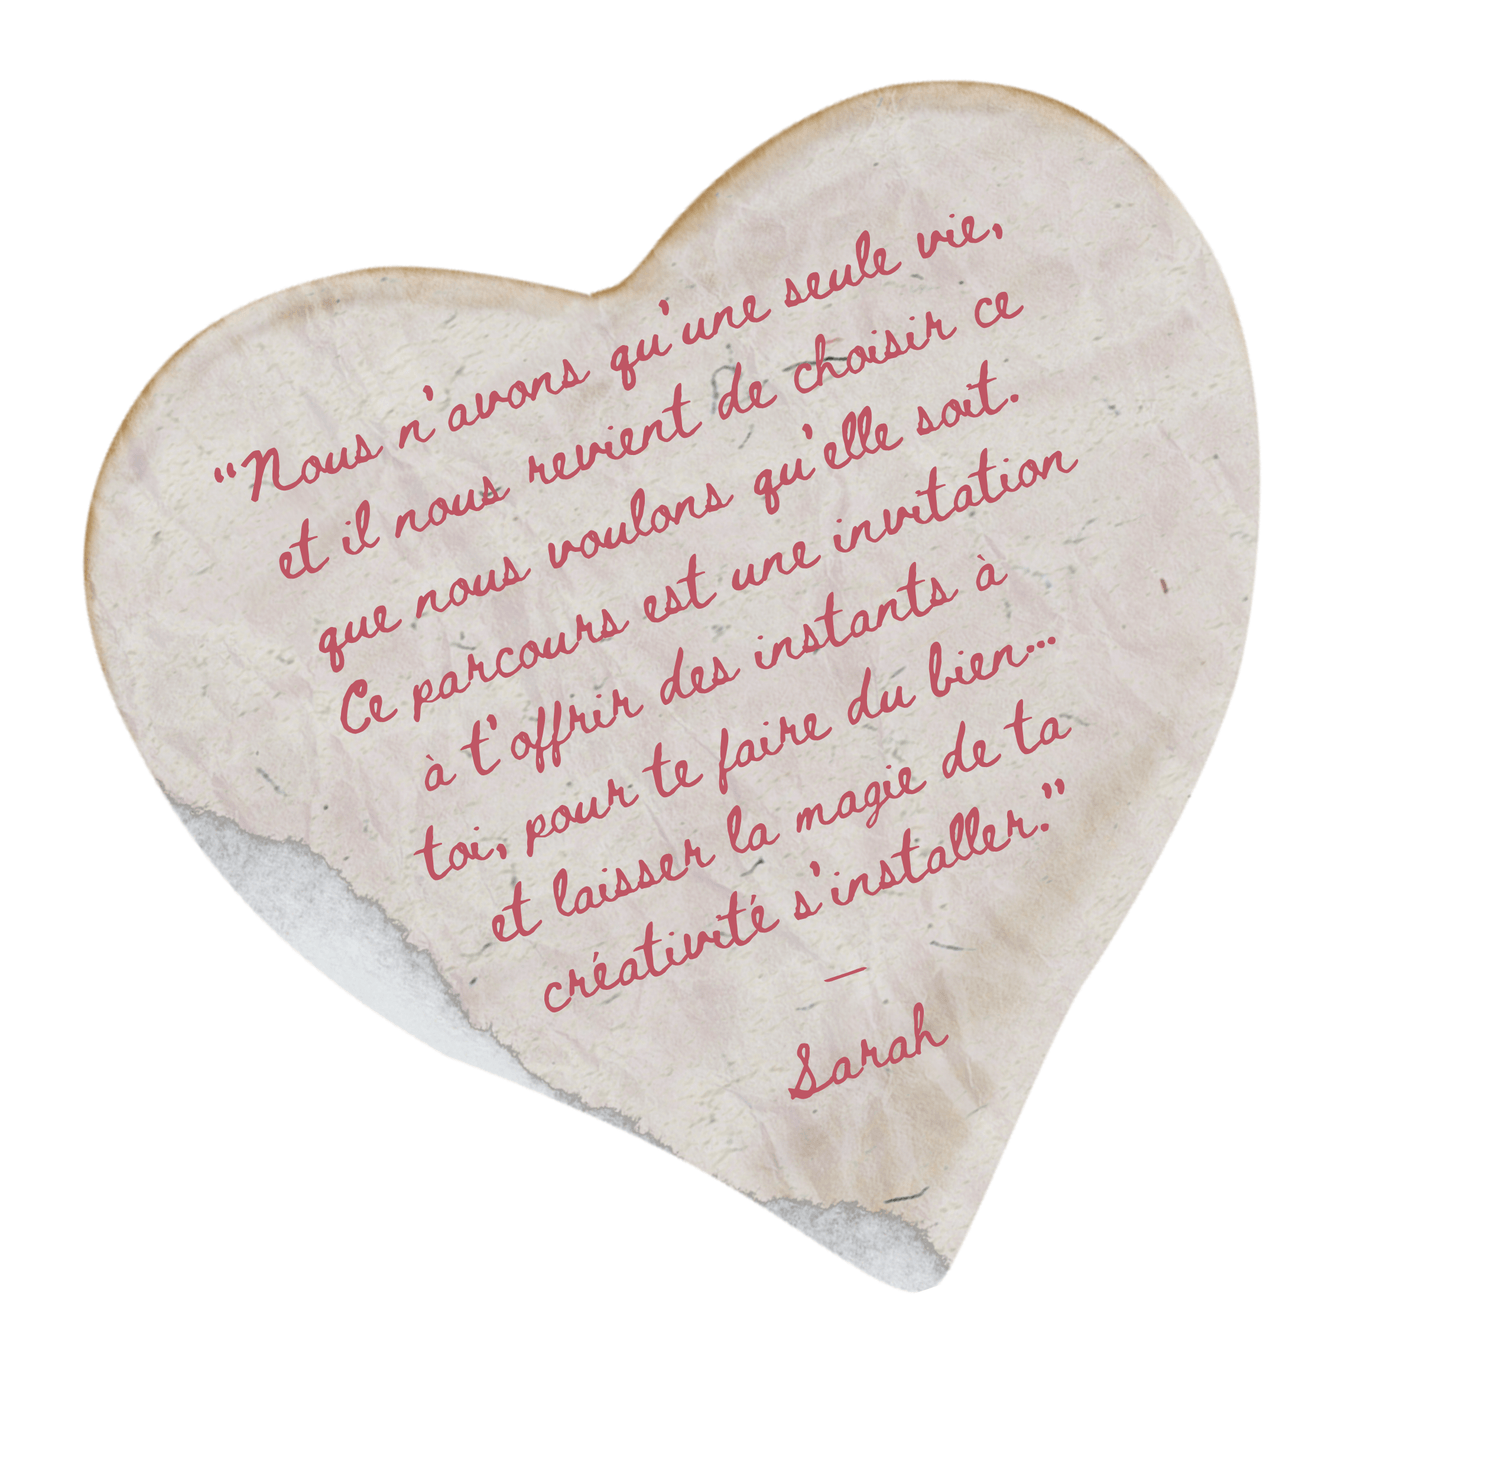 “Nous n'avons qu'une seule vie,
et il nous revient de choisir ce
que nous voulons qu'elle soit.
Ce parcours est une invitation
à t'offrir des instants à
toi, pour te faire du bien...
et laisser la magie de ta
créativité s'installer.”
—
Sarah